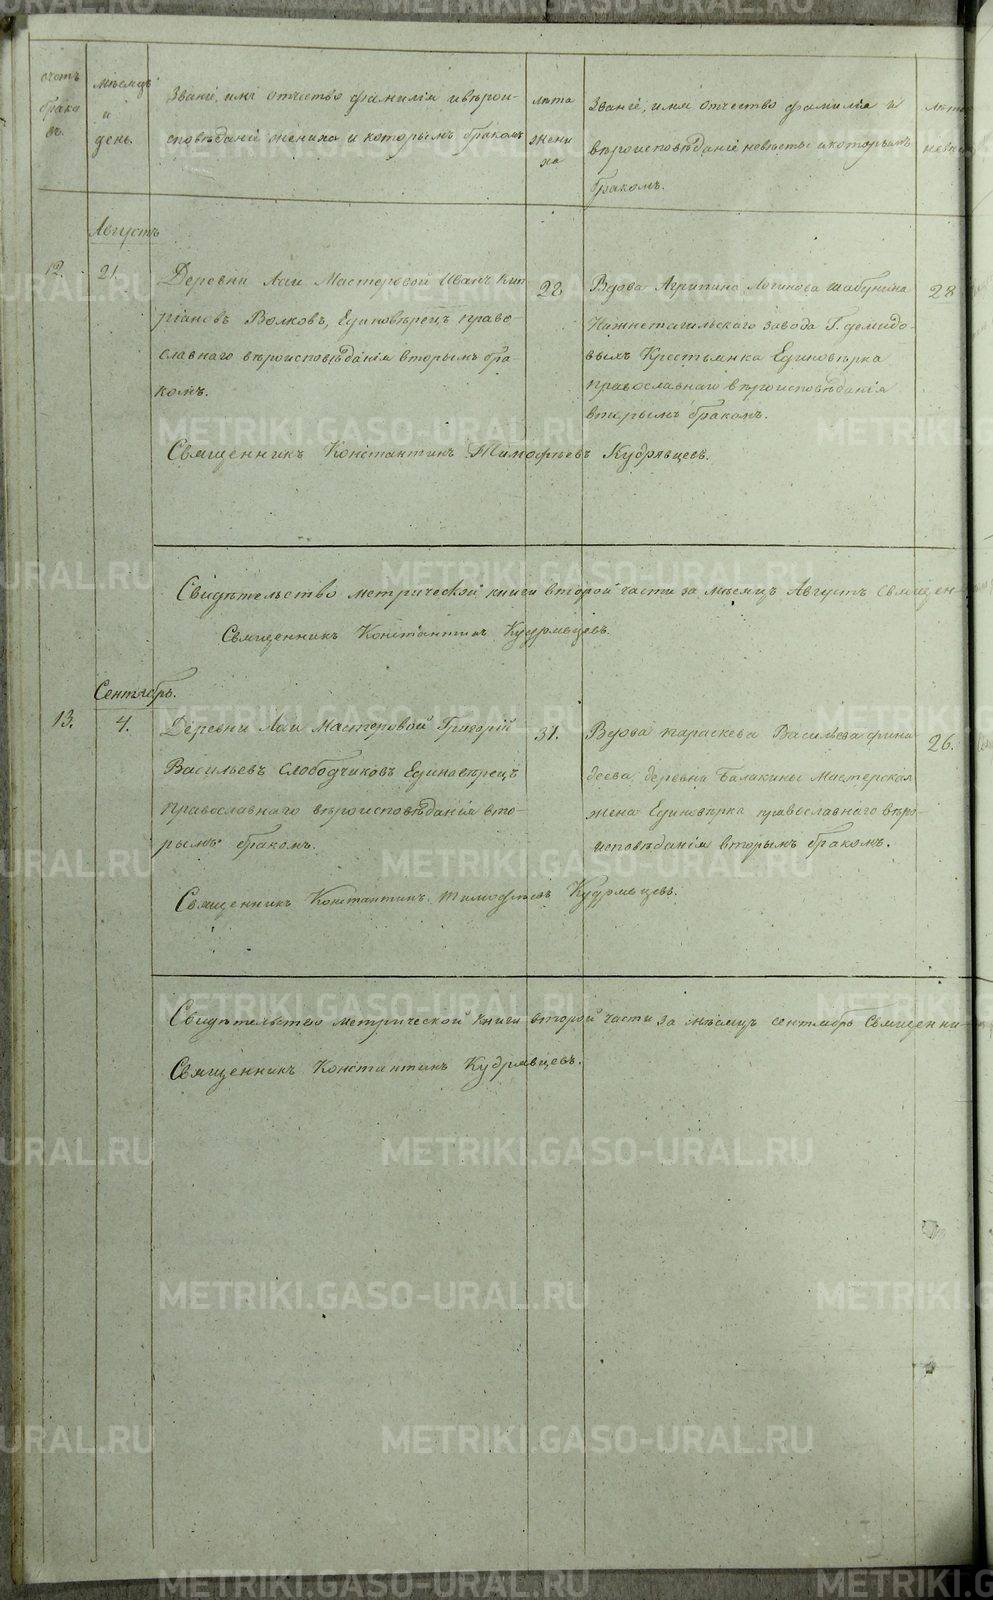 счетъ
брако
въ.
мѣсяцъ
и
день.
Званіе, имя отчество фамилія и вѣрои-
сповѣданіе жениха и которымъ бракомъ
лѣта
жени
ха
Званіе, имя отчество фамилія и
вѣроисповѣданіе невѣсты и которымъ
бракомъ.
лѣта
невѣс
Августъ
12.
21.
Деревни Лаи Мастеровой Иванъ Кип-
ріановъ Волковъ, Единовѣрецъ право-
славнаго вѣроисповѣданія вторымъ бра-
комъ.
28
Вдова Агрипина Логинова Шабунина
Нижнетагильскаго завода Г. Демидо-
выхъ Крестьянка Единовѣрка
православнаго вѣроисповѣданія
вторымъ бракомъ.
28
Священникъ Константинъ Тимофѣевъ Кудрявцевъ.
Свидѣтельство метрической книги второй части за мѣсяцъ Августъ Священ-
Священникъ Константинъ Кудрявцевъ.
Сентябрь.
13.
4.
Деревни Лаи Мастеровой Григорій
Васильевъ Слободчиковъ Единовѣрецъ
православнаго вѣроисповѣданія вто-
рымъ бракомъ.
31.
Вдова Параскева Васильева
деева, деревни Балакины Мастерская
жена Единовѣрка православнаго вѣро-
исповѣданія вторымъ бракомъ.
26.
Священникъ Константинъ Тимофѣевъ Кудрявцевъ.
Свидѣтельство метрической книги второй части за мѣсяцъ сентябрь Священни-
Священникъ Константинъ Кудрявцевъ.
METRIKI.GASO-URAL.RU